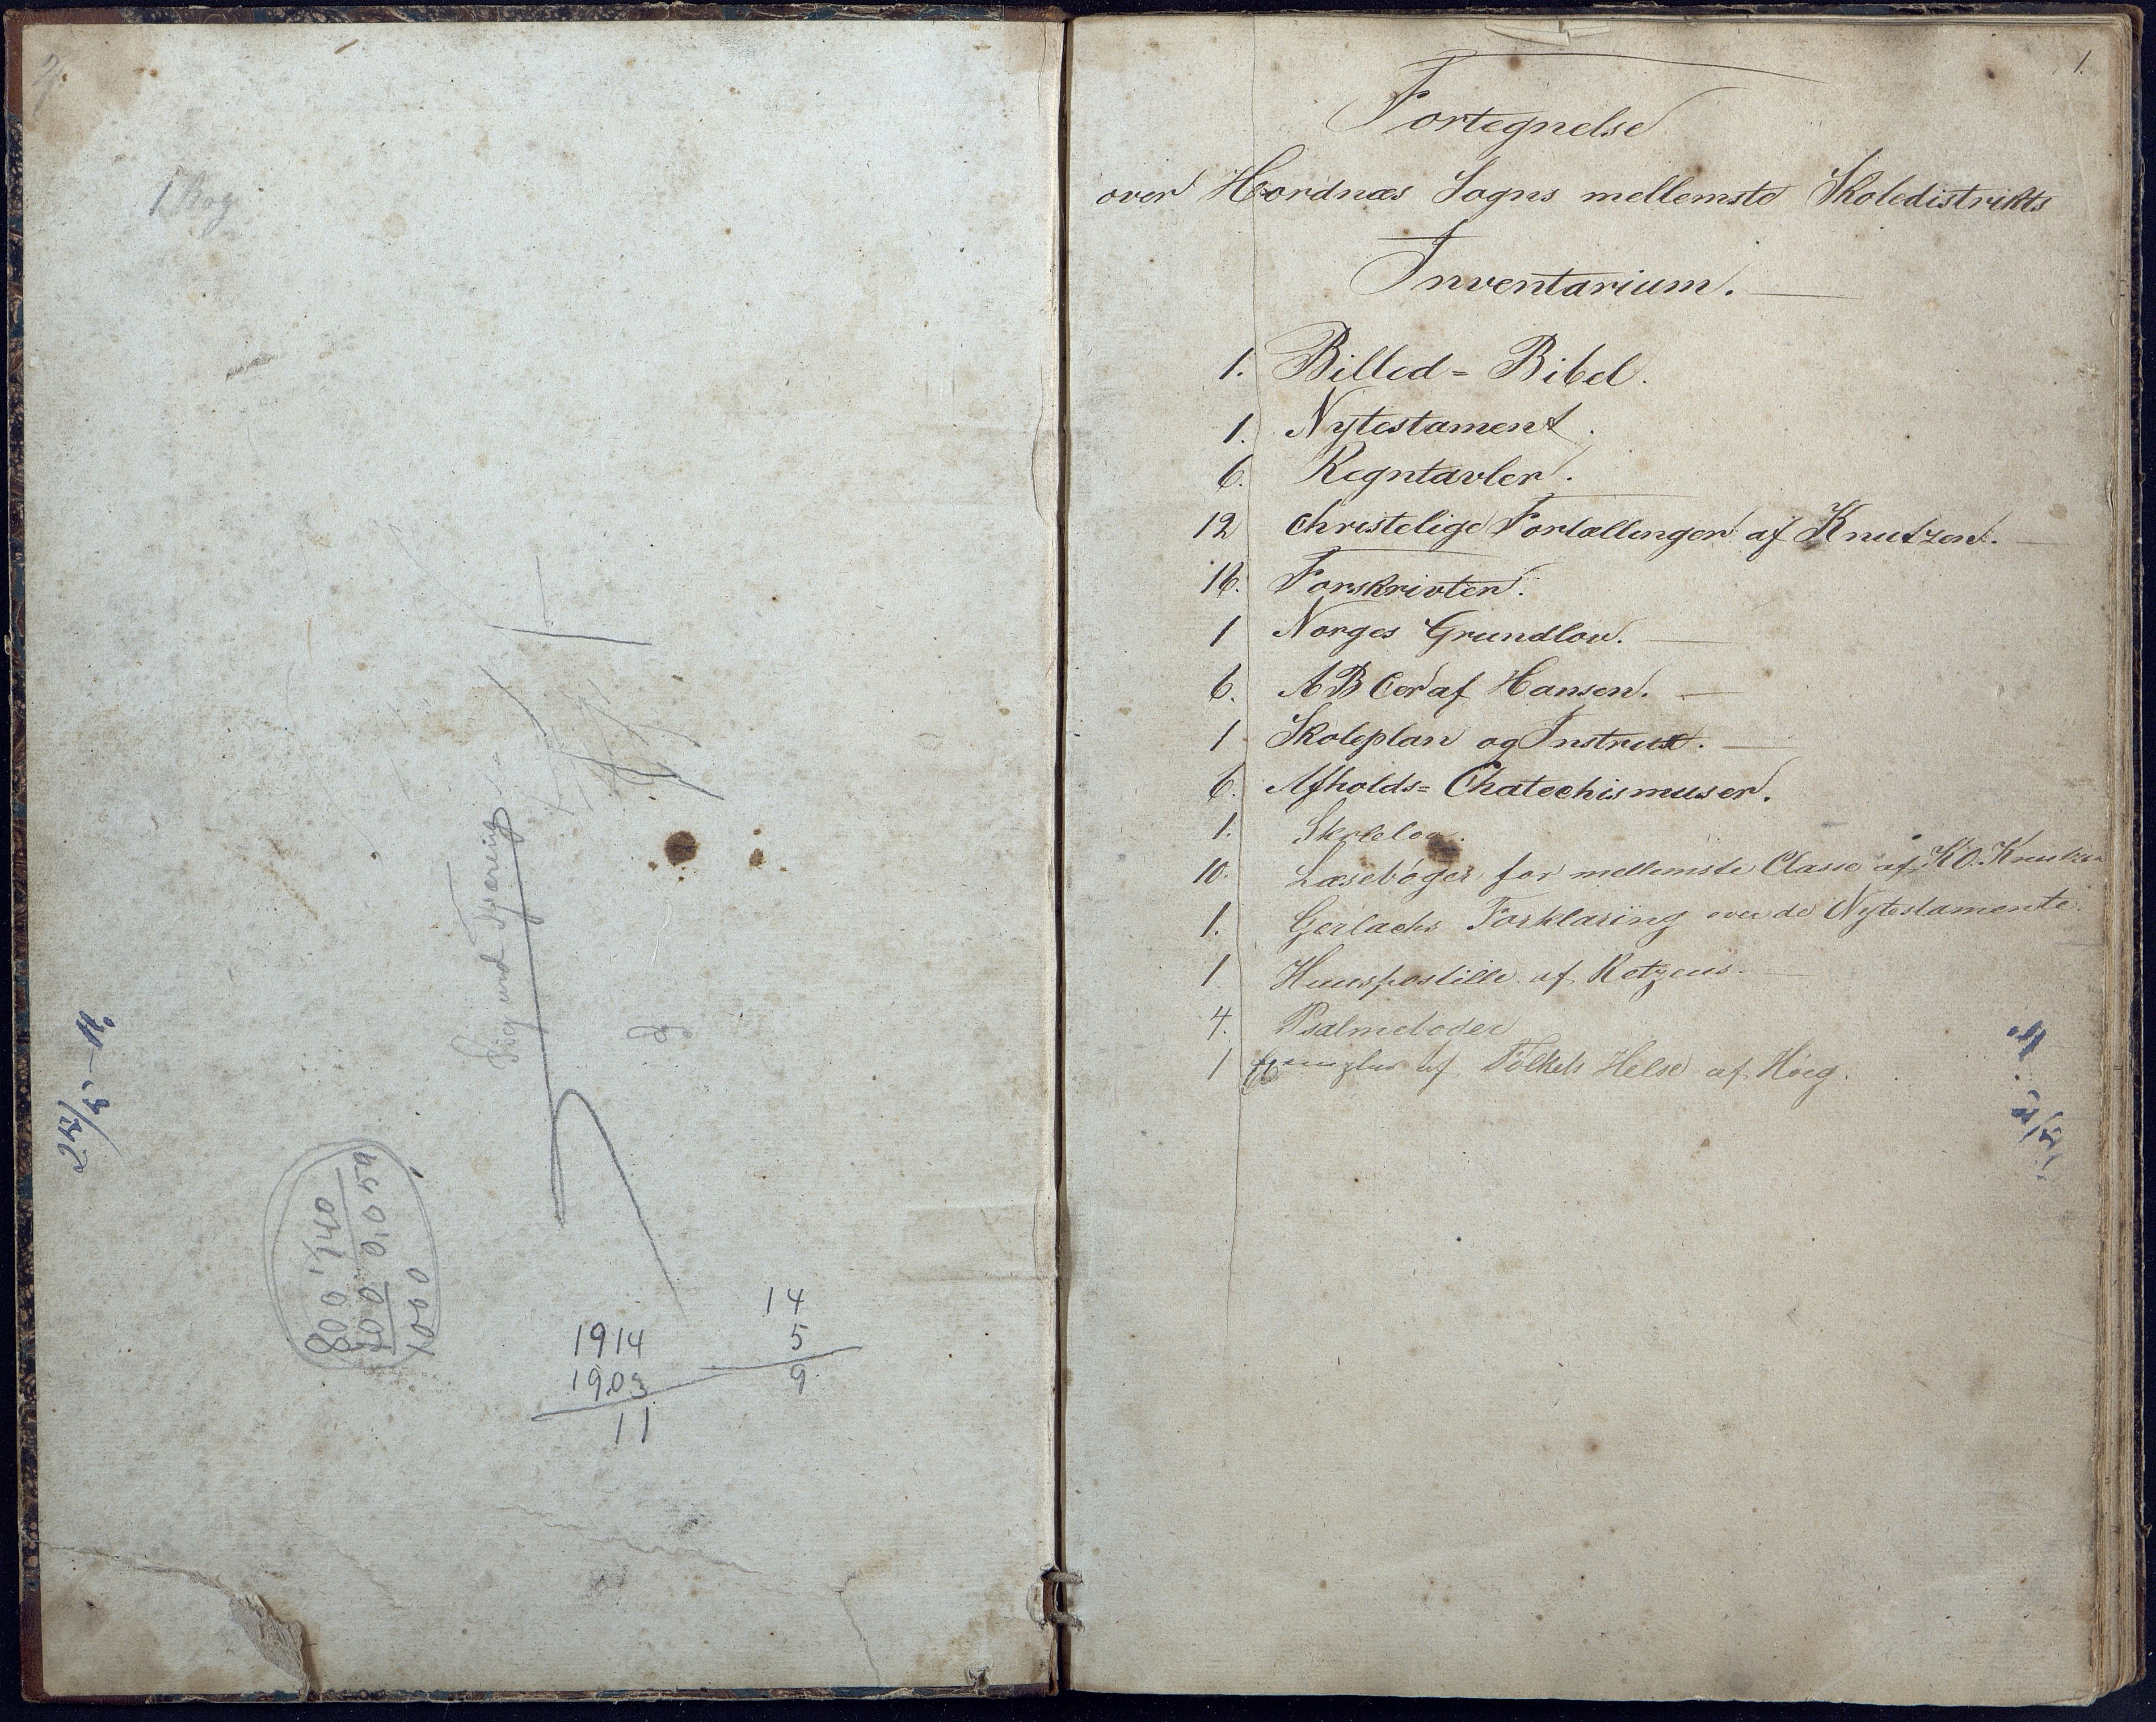 1 Bog
Sigurd
25/5-11.
1914
1903
11
14
5
9
1.
Fortegnelse
over Hordnæs Sogns mellemste Skoledistrikts
Inventarium.
1. Billed= Bibel.
1. Nytestament.
6. Regntavler.
12 Christelige Fortællinger af Knutzen.
16. Forskrivter.
1 Norges Grundlov.
6. ABCer af Hansen.
1 Skoleplan og Instrux.
6. Afholds= Chatechismuser.
1. Skolelov.
10. Læsebøger for mellemste Classe af K O. Knutzen
1. Gerlachs Forklaring over de Nytestamente.
1 Huuspostille af
4. Psalmebøger
1 Exemplar af Folkets Helse af Høeg.